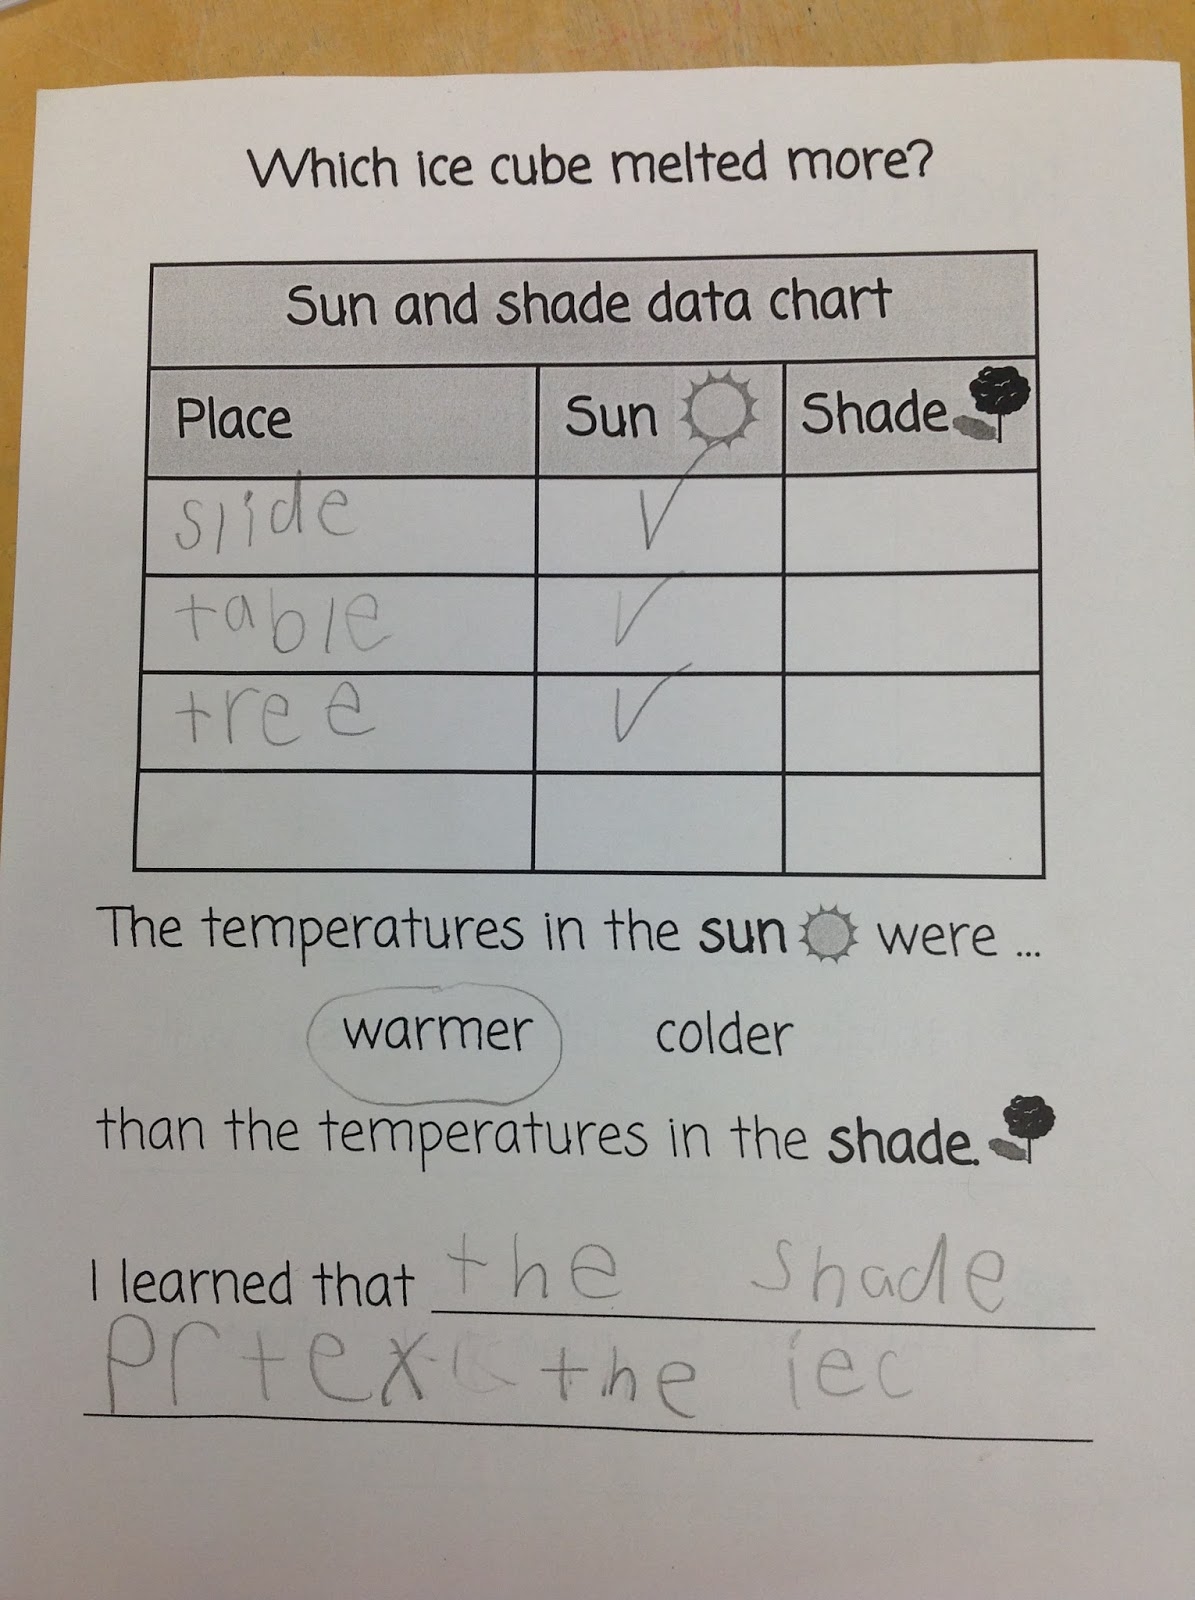 Which ice cube melted more?
Sun and shade data chart
Place Sun Shade
slide ✓
table ✓
tree ✓
The temperatures in the sun were ...
warmer colder
than the temperatures in the shade.
I learned that the shade
prtex the iec